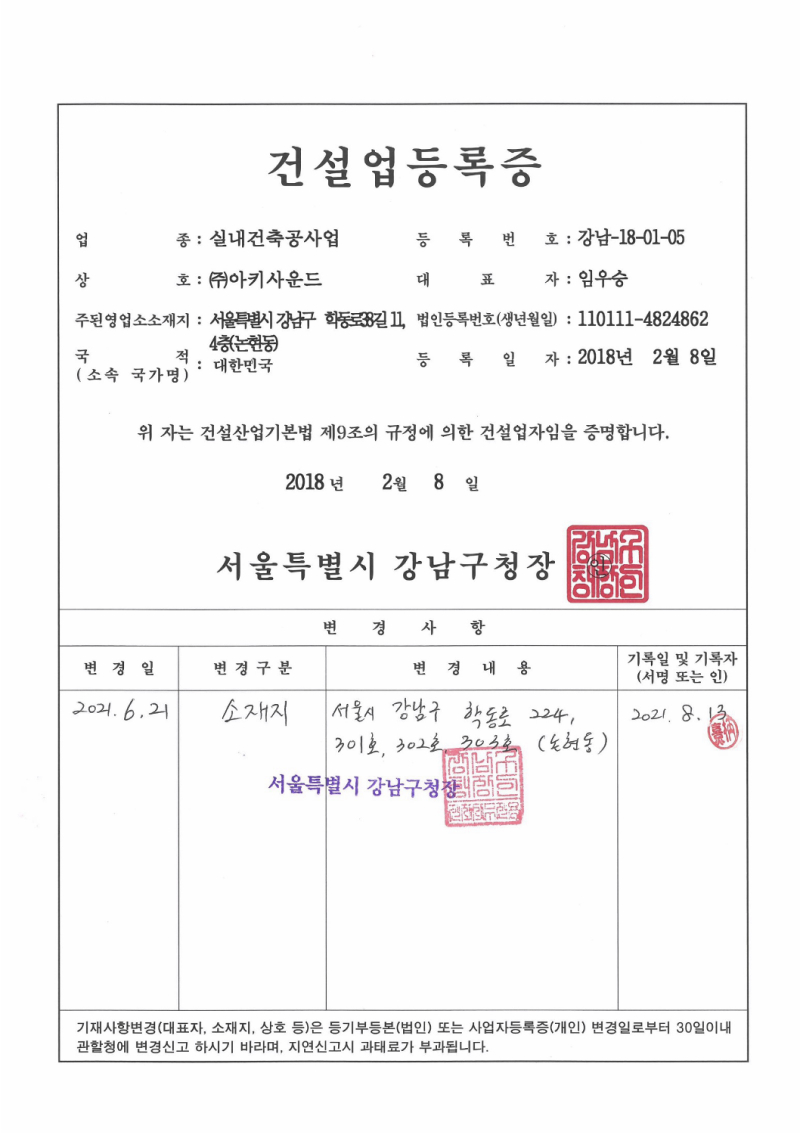 건설업등록증
업 종 : 실내건축공사업 등 록 번 호 : 강남-18-01-05
상 호 : ㈜아키사운드 대 표 자 : 임우승
주된영업소소재지 : 서울특별시 강남구 학동로38길 11, 법인등록번호(생년월일) : 110111-4824862
4층(논현동)
국 적 : 대한민국 등 록 일 자 : 2018년 2월 8일
(소속 국가명)
위 자는 건설산업기본법 제9조의 규정에 의한 건설업자임을 증명합니다.
2018 년 2월 8 일
서울특별시 강남구청장 인
변 경 사 항
변 경 일 변 경 구 분 변 경 내 용 기록일 및 기록자
(서명 또는 인)
2021. 6. 21 소재지 서울시 강남구 학동로 224, 2021. 8. 13
301호, 302호, 303호 (논현동)
서울특별시 강남구청장
기재사항변경(대표자, 소재지, 상호 등)은 등기부등본(법인) 또는 사업자등록증(개인) 변경일로부터 30일이내
관할청에 변경신고 하시기 바라며, 지연신고시 과태료가 부과됩니다.